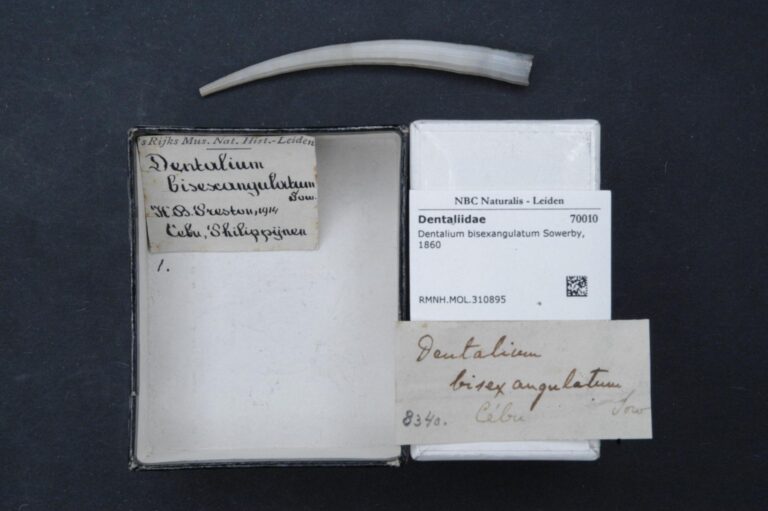 's Rijks Mus. Nat. Hist.-Leiden
Dentalium
bisexangulatum
Sow.
H.B. Preston, 1914
Cebu, Philippijnen
1.
NBC Naturalis - Leiden
Dentaliidae 70010
Dentalium bisexangulatum Sowerby,
1860
RMNH.MOL.310895
Dentalium
bisexangulatum
Sow
8340. Cébu